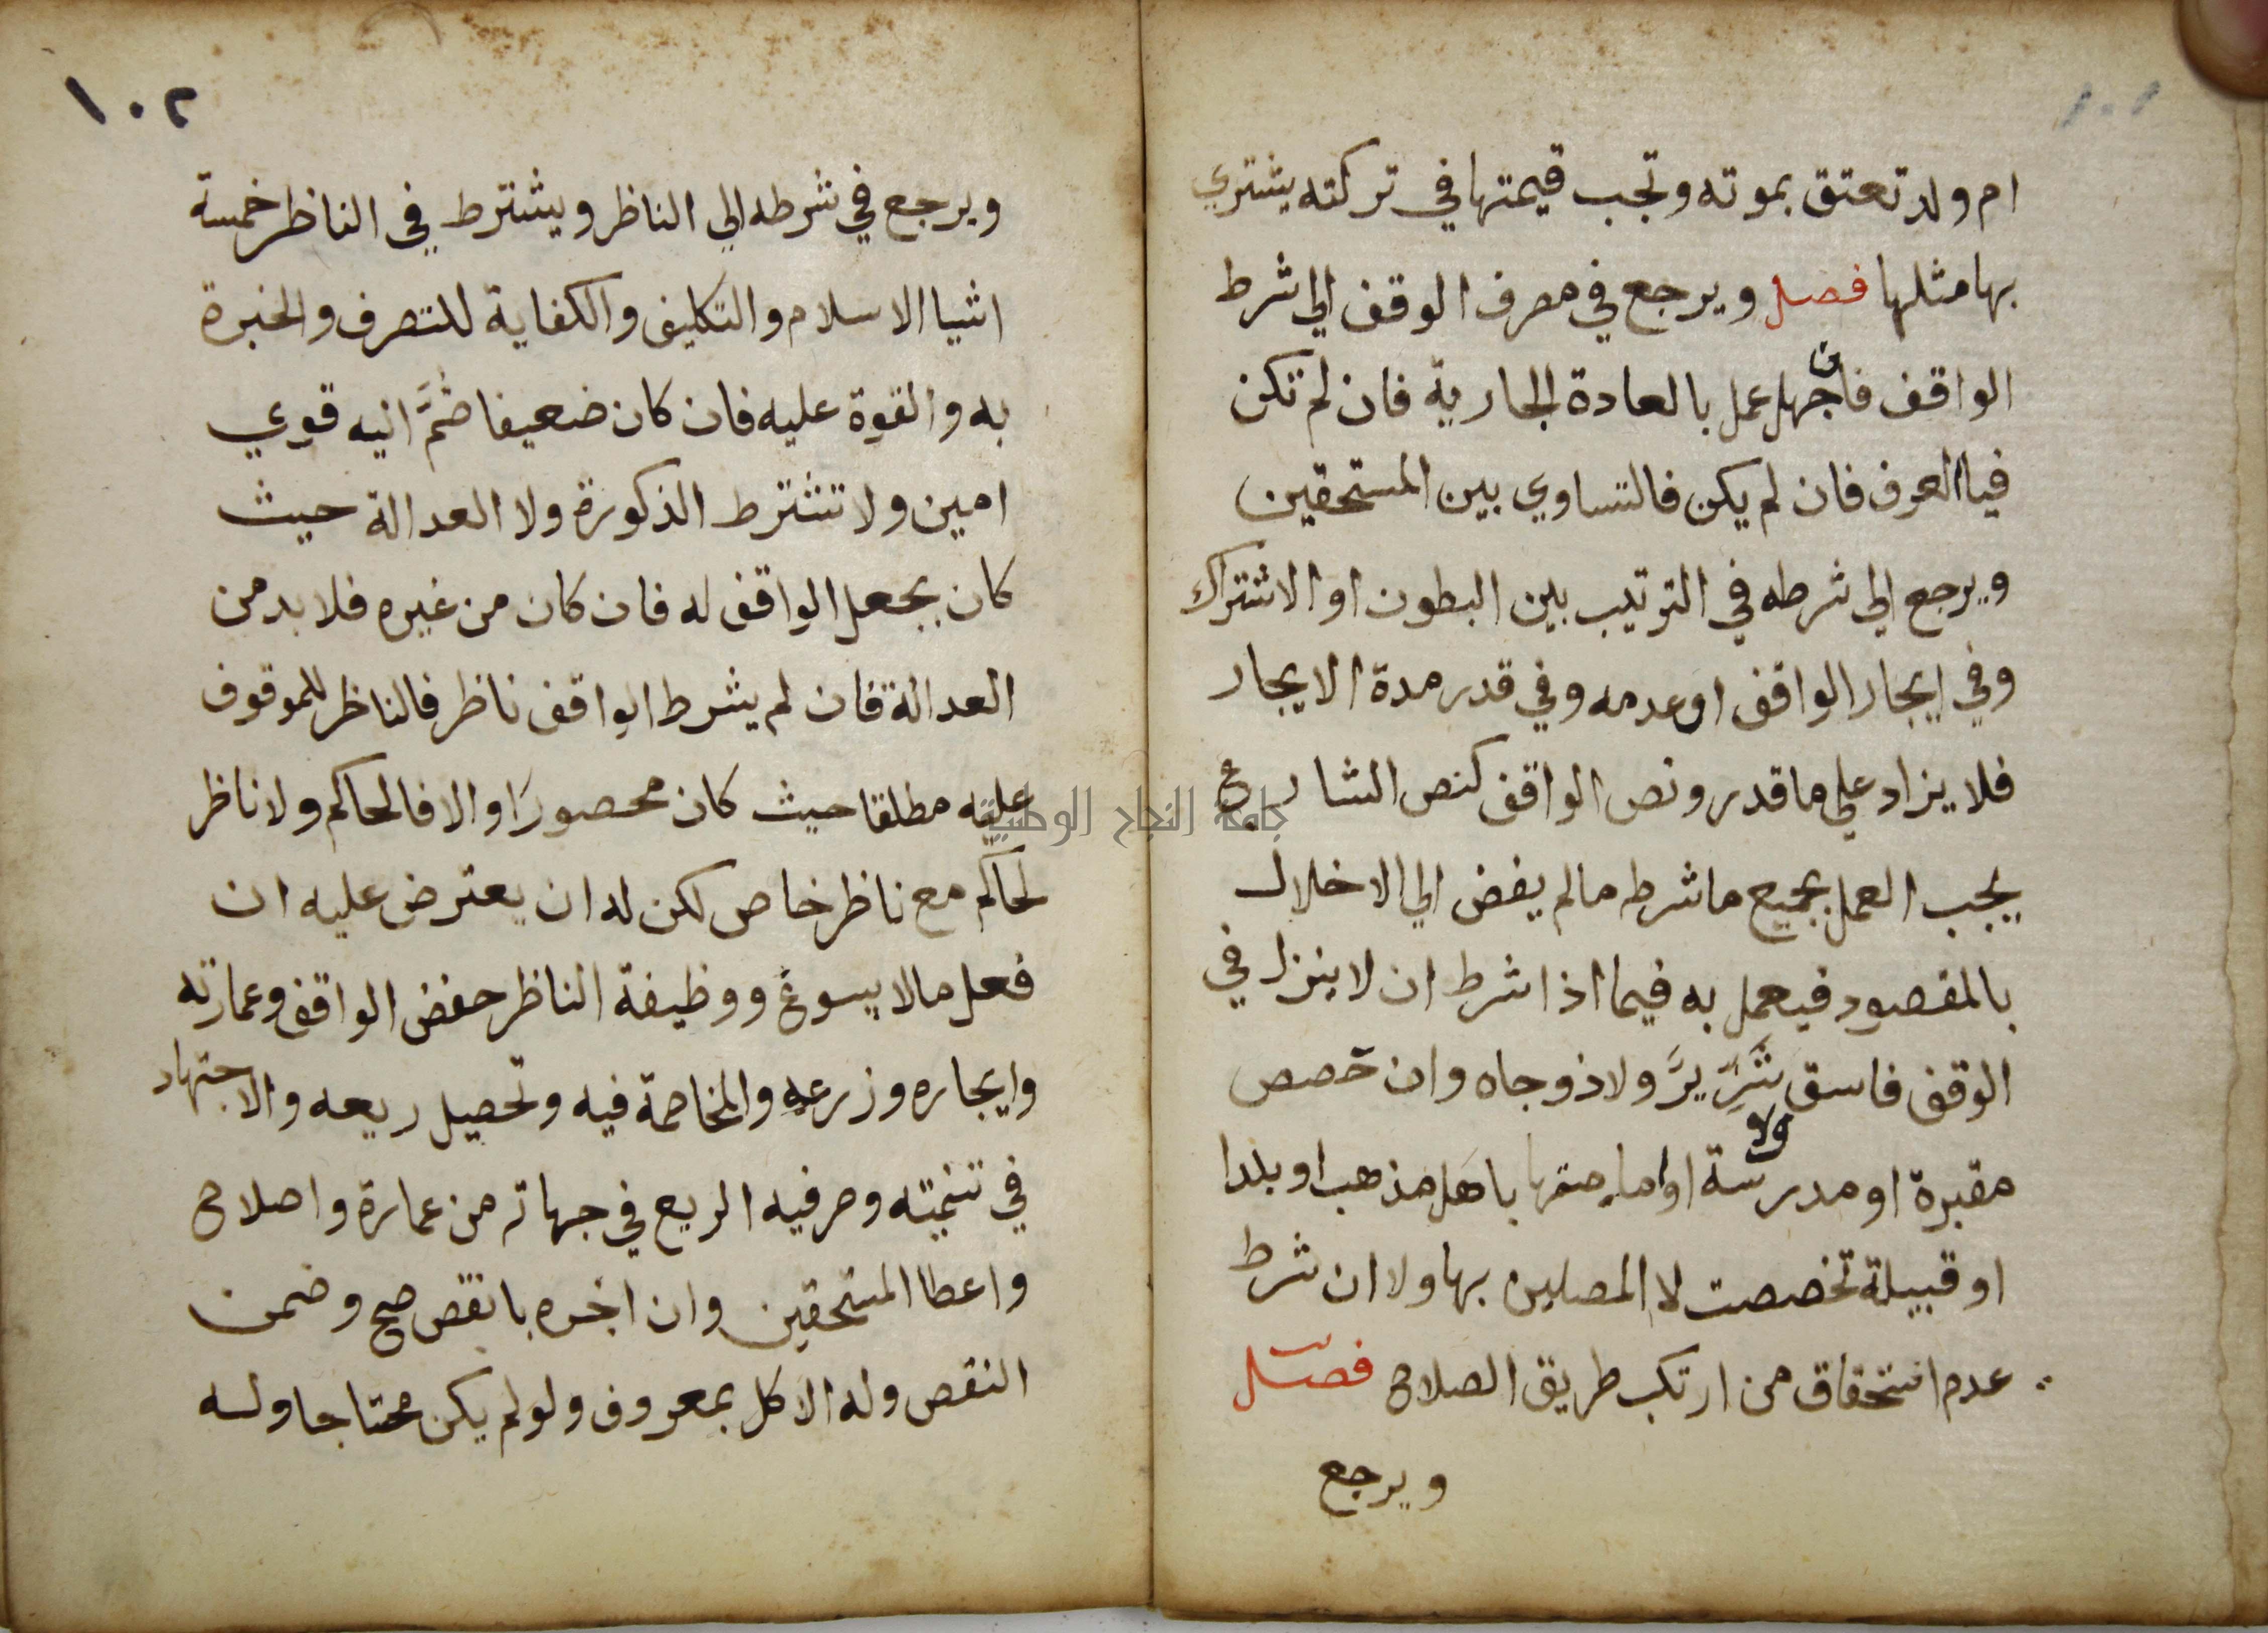 ١٠١
ام ولد تعتق بموته وتجب قيمتها في تركته يشتري
بها مثلها فصل ويرجع في مصرف الوقف الي شرط
الواقف فان جهل عمل بالعادة الجارية فان لم تكن
فبالعرف فان لم يكن فالتساوي بين المستحقين
ويرجع الي شرطه في الترتيب بين البطون او الاشتراك
وفي ايجار الواقف او عدمه وفي قدر مدة الايجار
فلا يزاد علي ما قدر ونص الواقف كنص الشارع
يجب العمل بجميع ما شرطه مالم يفض الي الاخلال
بالمقصود فيعمل به فيما اذا شرط ان لا ينزل في
الوقف فاسق شَرِّيرَّ ولا ذو جاه وان خصص
مقبرة او مدرسة او امامتها باهل مذهب او بلدا
ولا
او قبيلة تخصصت لا المصلين بها ولا ان شرط
عدم استحقاق من ارتكب طريق الصلاح فصل
ويرجع
١٠٢
ويرجع في شرطه الي الناظر ويشترط في الناظر خمسة
اشيا الاسلام والتكليف والكفاية للتصرف والخبرة
به والقوة عليه فان كان ضعيفا ضُمَّ اليه قوي
امين ولا تشترط الذكورة ولا العدالة حيث
كان بجعل الواقف له فان كان من غيره فلا بد من
العدالة فان لم يشرط الواقف ناظر فالناظر للموقوف
عليه مطلقا حيث كان محصورًا والا فالحاكم ولا ناظر
لحاكم مع ناظر خاص لكن له ان يعترض عليه ان
فعل مالا يسوغ ووظيفة الناظر حفض الواقف وعمارته
وايجاره وزرعه والمخاصمة فيه وتحصيل ريعه والاجتهاد
في تنميته وصرفيه الريع في جهاته من عمارة واصلاح
واعطا المستحقين وان اخره بانقص صح وضمن
النقص وله الاكل بمعروف ولو لم يكن محتاجا وله
جامعة النجاح الوطنية